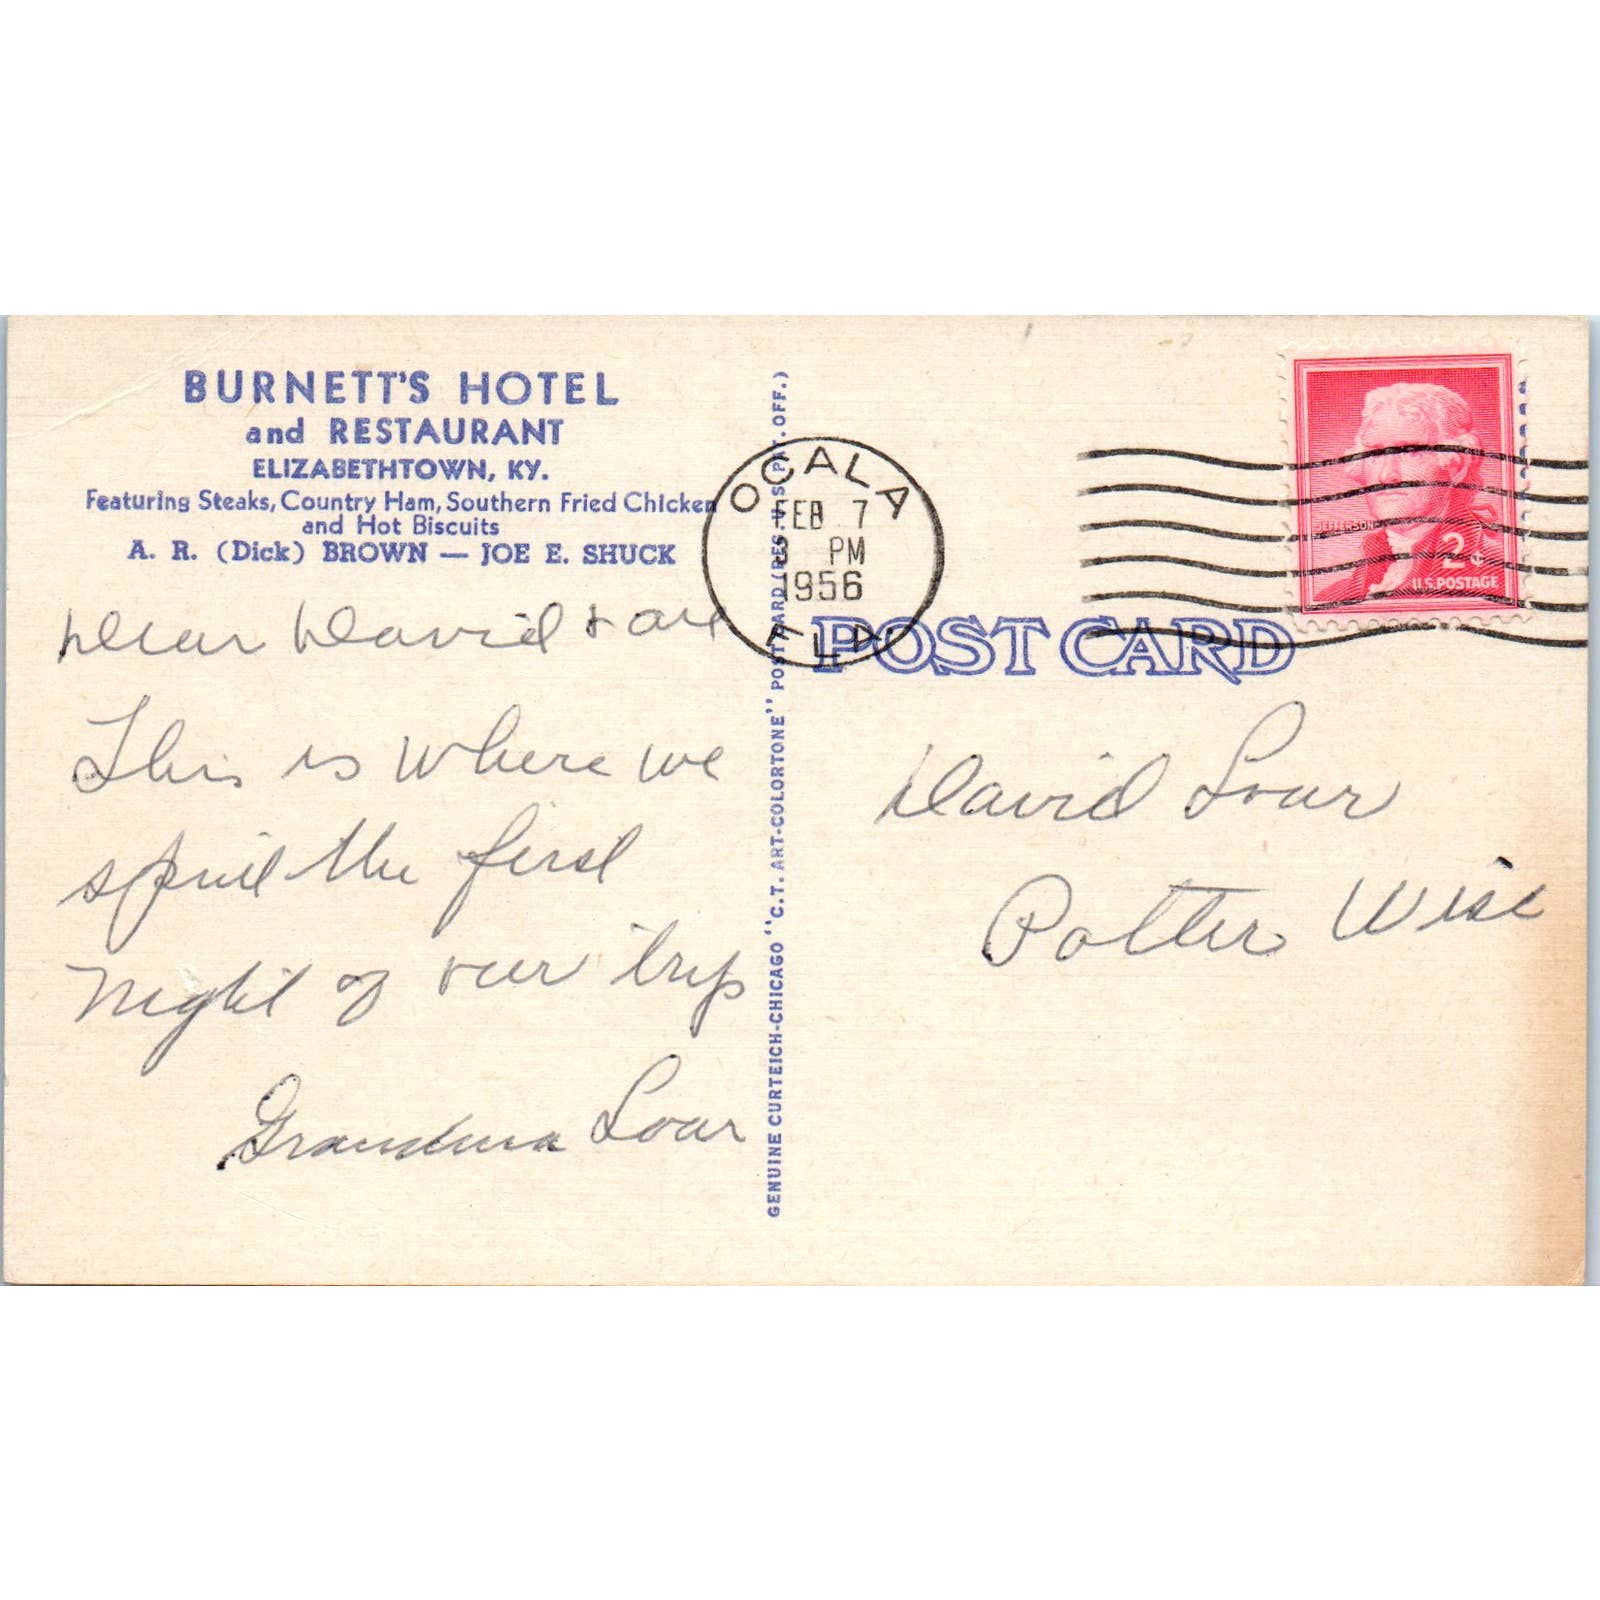 BURNETT'S HOTEL
and RESTAURANT
ELIZABETHTOWN, KY.
Featuring Steaks, Country Ham, Southern Fried Chicken
and Hot Biscuits
A. R. (Dick) BROWN — JOE E. SHUCK
Dear David & all
This is where we
spent the first
night of our trip
Grandma Loar
GENUINE CURTEICH-CHICAGO "C.T. ART-COLORTONE" POST CARD (REG. U.S. PAT. OFF.)
OCALA
FEB 7
PM
1956
FLA
JEFFERSON
2¢
U.S. POSTAGE
POST CARD
David Loar
Potter Wisc